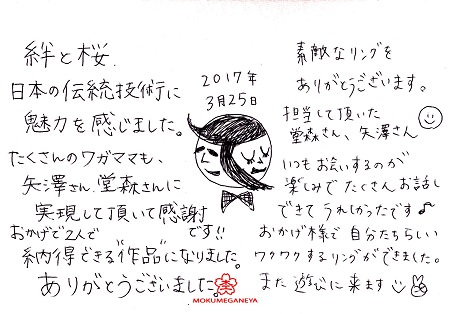 絆と桜.
日本の伝統技術に
魅力を感じました。
たくさんのワガママも、
矢澤さん、堂森さんに
実現して頂いて感謝
です!!
おかげで2人で
納得できる“作品”になりました。
ありがとうございました。
2017年
3月25日
素敵なリングを
ありがとうございます。
担当して頂いた
堂森さん、矢澤さん
いつもお会いするのが
楽しみでたくさんお話し
できてうれしかったです♪
おかげ様で自分たちらしい
ワクワクするリングができました。
また遊びに来ます
MOKUMEGANEYA